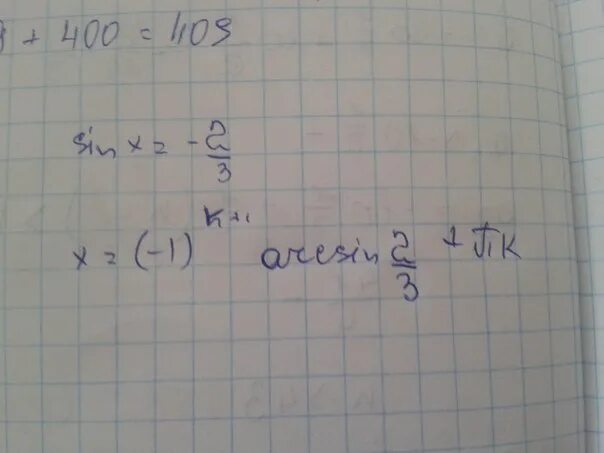 9 + 400 = 409
sin x = -2/3
x = (-1)^{k+1} arcsin 2/3 + πk